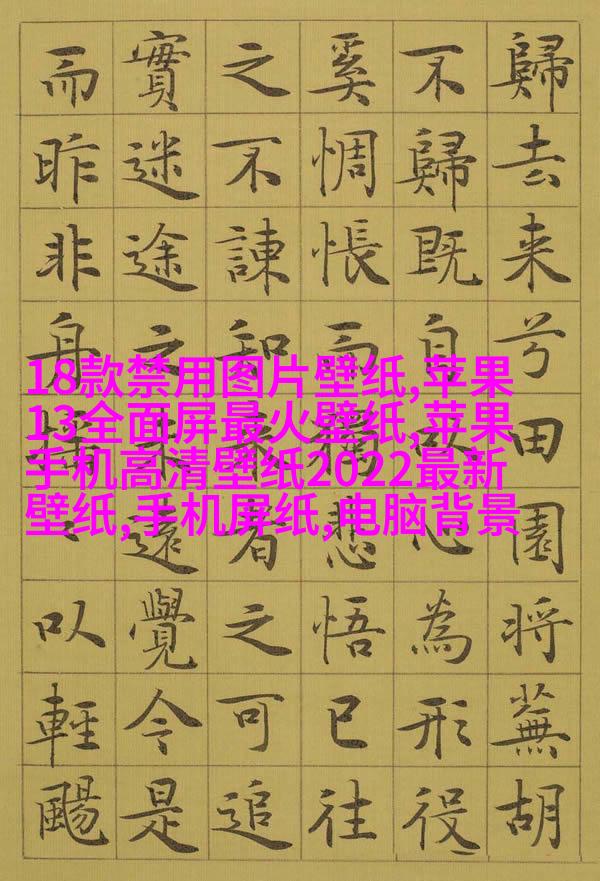 歸去来兮田園将蕪胡
不歸既自以心為形役
奚惆悵而獨悲悟已往
之不諫知来者之可追
實迷途之未遠覺今是
而昨非舟揺以輕颺
18款禁用图片壁纸,苹果
13全面屏最火壁纸,苹果
手机高清壁纸2022最新
壁纸,手机屏纸,电脑背景